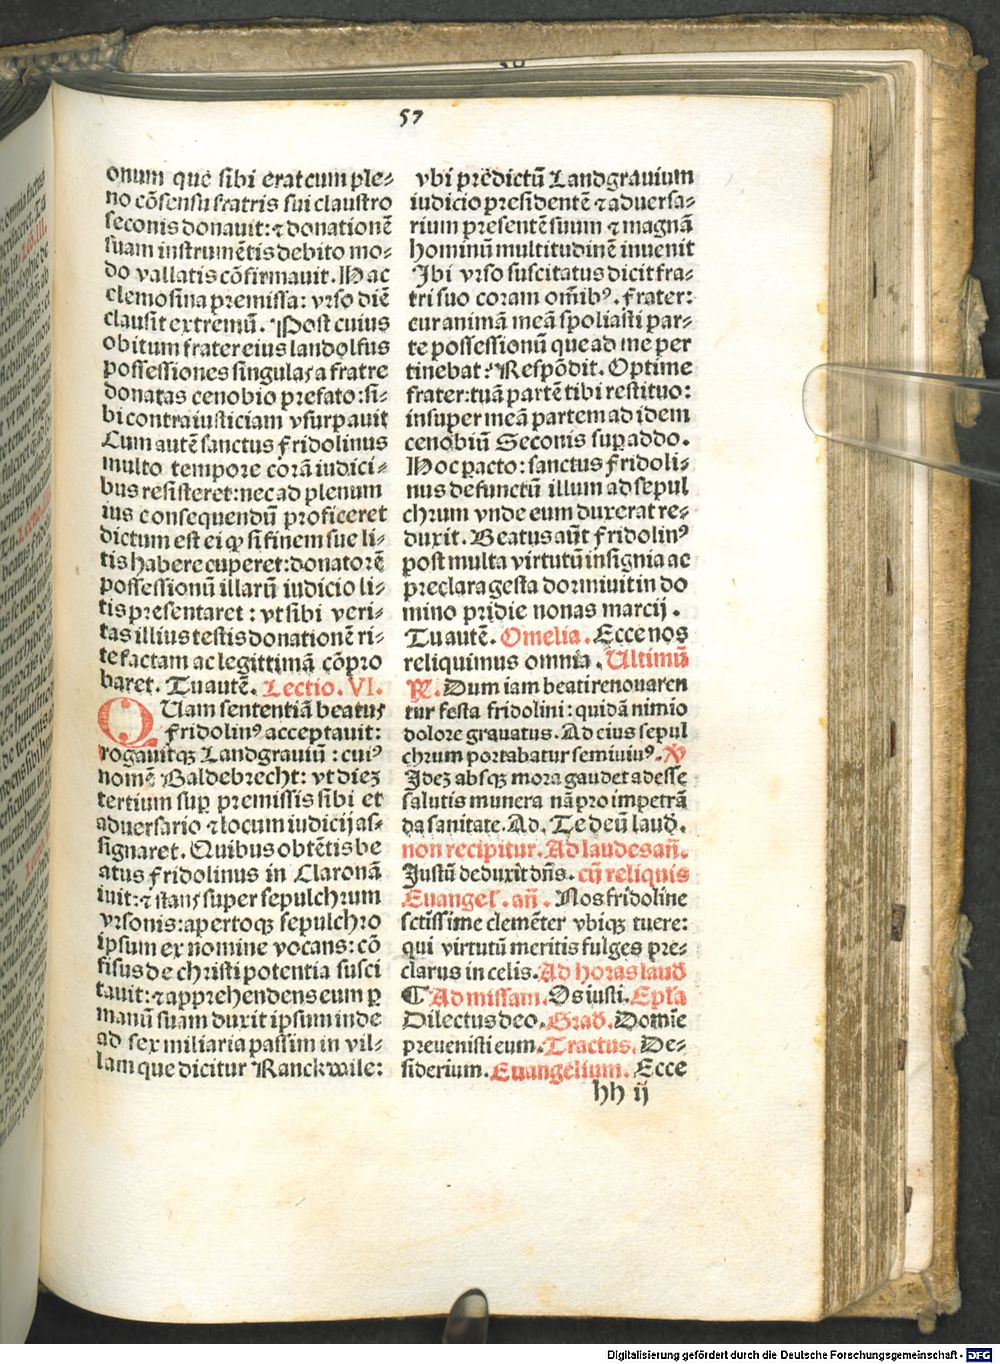 57
onum que sibi erat cum ple⸗
no cõsensu fratris sui claustro
seconis donauit: ⁊ donationẽ
suam instrumẽtis debito mo⸗
do vallatis cõfirmauit. Hac
elemosina premissa: vrso diẽ
clausit extremũ. Post cuius
obitum frater eius landolfus
possessiones singulas a fratre
donatas cenobio prefato: si⸗
bi contra iusticiam vsurpauit
Cum autẽ sanctus fridolinus
multo tempore corã iudici⸗
bus resisteret: nec ad plenum
ius consequendũ proficeret
dictum est ei ꝙ si finem sue li⸗
tis habere cuperet: donatorẽ
possessionũ illarũ iudicio li⸗
tis presentaret : vt sibi veri⸗
tas illius testis donationẽ ri⸗
te factam ac legittimã cõpro
baret. Tu autẽ. Lectio. VI.
QUam sententiã beatus
fridolinꝰ acceptauit:
rogauitqꝫ Landgrauiũ : cuiꝰ
nomẽ Baldebrecht: vt dieꝫ
tertium sup premissis sibi et
aduersario ⁊ locum iudicij as⸗
signaret. Quibus obtẽtis be
atus fridolinus in Claronã
iuit: ⁊ stans super sepulchrum
vrsonis: apertoqꝫ sepulchro
ipsum ex nomine vocans: cõ
fisus de christi potentia susci
tauit: ⁊ apprehendens eum ꝑ
manũ suam duxit ipsum inde
ad sex miliaria passim in vil⸗
lam que dicitur Ranckwile:
vbi predictũ Landgrauium
iudicio presidentẽ ⁊ aduersa⸗
rium presentẽ suum ⁊ magnã
hominũ multitudinẽ inuenit
Ibi vrso suscitatus dicit fra⸗
tri suo coram om̃ibꝰ. frater:
cur animã meã spoliasti par⸗
te possessionũ que ad me per
tinebat? Respõdit. Optime
frater: tuã partẽ tibi restituo:
insuper meã partem ad idem
cenobiũ Seconis supaddo.
Hoc pacto: sanctus fridoli⸗
nus defunctũ illum ad sepul
chrum vnde eum duxerat re⸗
duxit. Beatus aũt fridolinꝰ
post multa virtutũ insignia ac
preclara gesta dormiuit in do
mino pridie nonas marcij .
Tu autẽ. Omelia. Ecce nos
reliquimus omnia. Ultimũ
℟. Dum iam beati renouaren
tur festa fridolini: quidã nimio
dolore grauatus. Ad eius sepul
chrum portabatur semiuiuꝰ. ℣
Ideꝫ absqꝫ mora gaudet adesse
salutis munera nã pro impetrã
da sanitate. Ad. Te deũ laud̃.
non recipitur. Ad laudes añ.
Justũ deduxit dñs. cũ reliquis
Euangel. añ. Nos fridoline
sctissime clemẽter vbiqꝫ tuere:
qui virtutũ meritis fulges pre⸗
clarus in celis. Ad horas laud̃
¶ Ad missam. Os iusti. Ep̃la
Dilectus deo. Grad̃. Domĩe
preuenisti eum. Tractus. De⸗
siderium. Euangelium. Ecce
hh ij
Digitalisierung gefördert durch die Deutsche Forschungsgemeinschaft - DFG